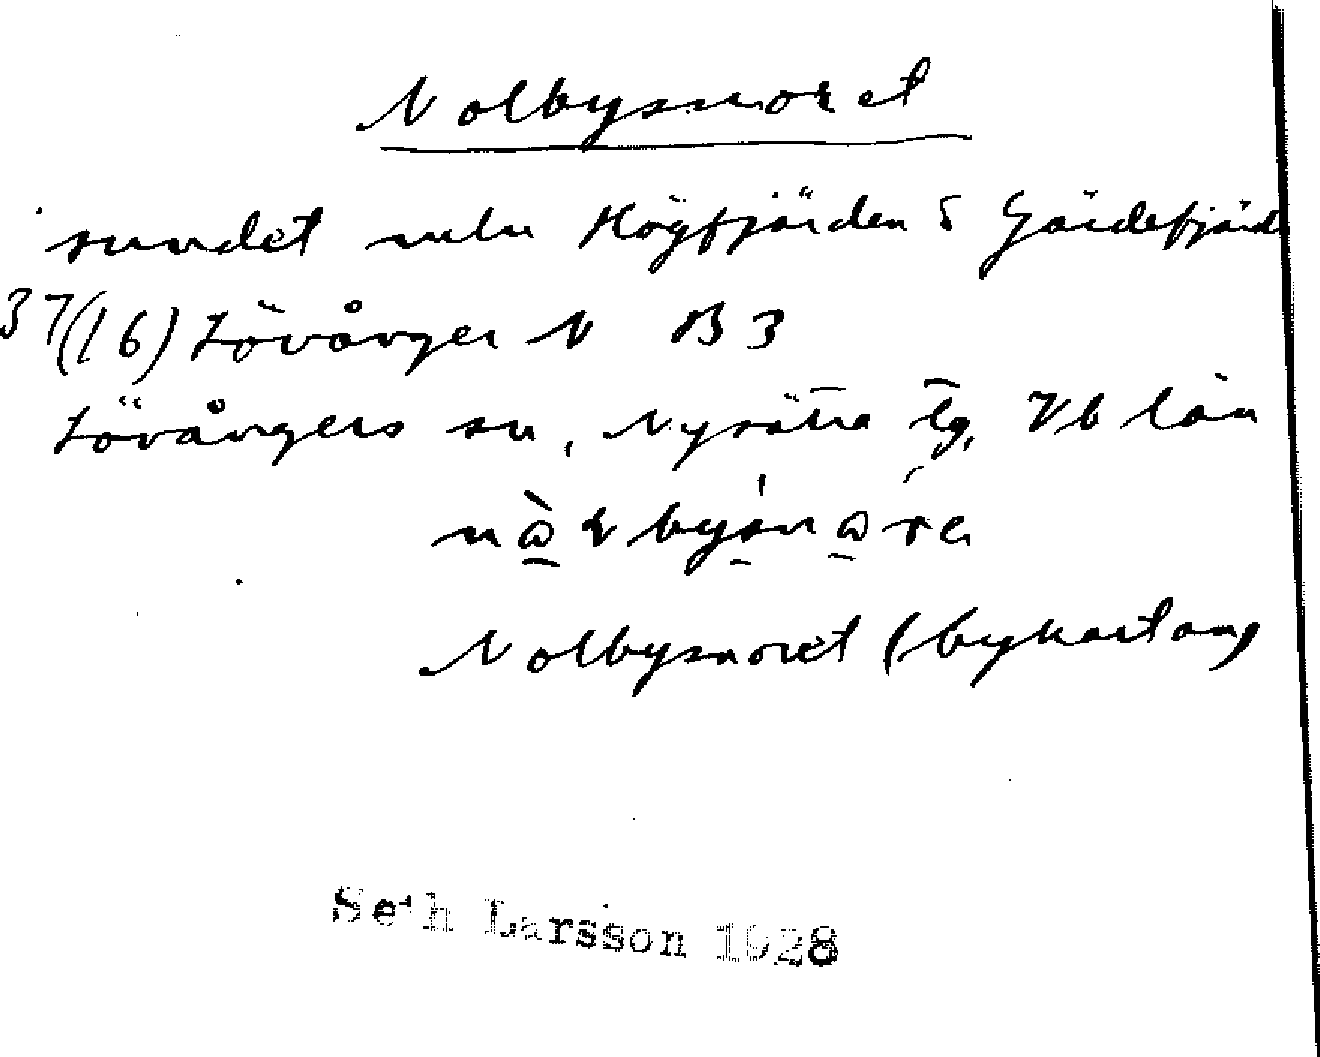 Nolbysnoret
sundet mln Högfjärden o Gärdefjärd
37(16) Lövånger N B3
Lövångers sn, Nysätra tg, Vb län
Nolbysnoret (bykartan)
Seth Larsson 1928